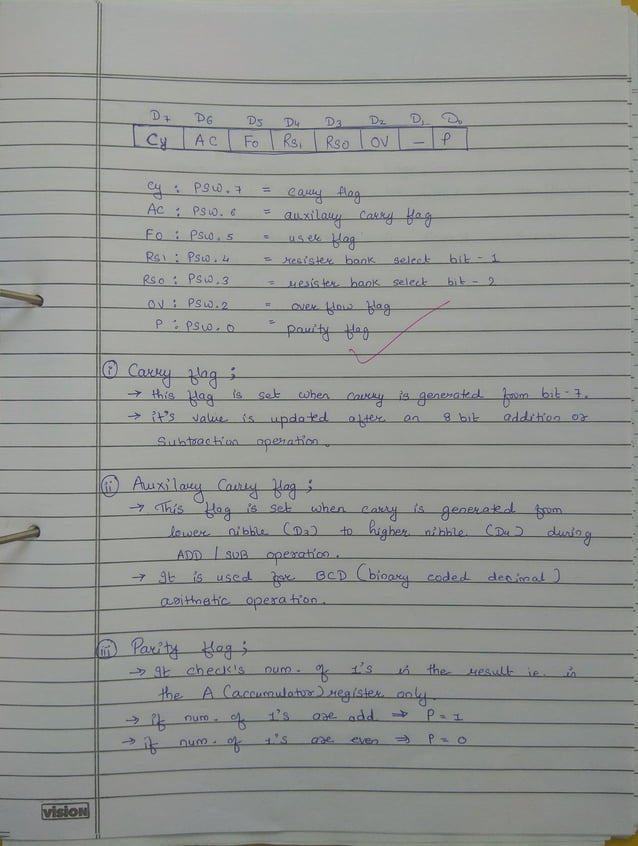 D7 D6 D5 D4 D3 D2 D1 D0
Cy AC Fo Rs1 RSO OV – P
Cy : PSW.7 = carry flag
AC : PSW.6 = auxilary carry flag
Fo : PSW.5 = user flag
Rs1 : PSW.4 = resister bank select bit - 1
RSO : PSW.3 = resister bank select bit - 2
OV : PSW.2 = over flow flag
P : PSW.0 = parity flag
(i) Carry flag ;
→ this flag is set when carry is generated from bit - 7.
→ it's value is updated after an 8 bit addition or
Subtraction operation.
(ii) Auxilary Carry flag ;
→ This flag is set when carry is generated from
lower nibble (D3) to higher nibble (D4) during
ADD / SUB operation.
→ It is used for BCD (binary coded decimal)
arithmetic operation.
(iii) Parity flag ;
→ It check's num. of 1's in the result ie. in
the A (accumulator) register only.
→ if num. of 1's are odd ⇒ P = 1
→ if num. of 1's are even ⇒ P = 0
vision